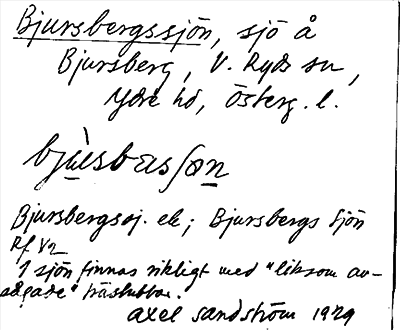 Bjursbergssjön, sjö å
Bjursberg, V. Ryds sn,
Ydre hd, Österg. l.
bjùsbæsʃøn
Bjursbergssj. ek; Bjursbergs Sjön
Rf 1/2
I sjön finnas rikligt med "liksom av-
sågade" trästubbar.
Axel Sandström 1929